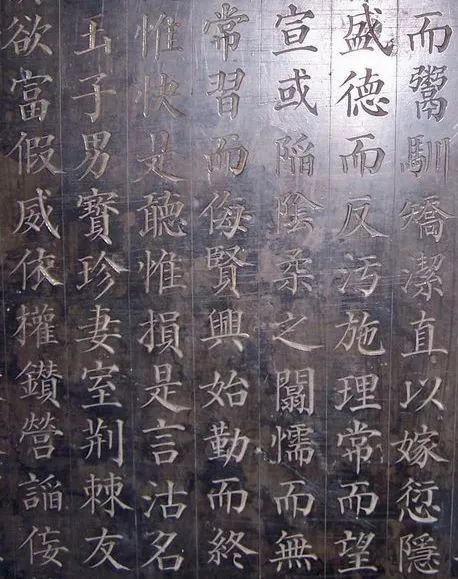 而鬻馴矯潔直以嫁愆隱
盛德而反污施理常而望
宣或陷陰柔之闒懦而無
常習而侮賢興始勤而終
惟快是聽惟損是言沽名
玉子男寶珍妻室荆棘友
欲富假威依權鑽營諂侫